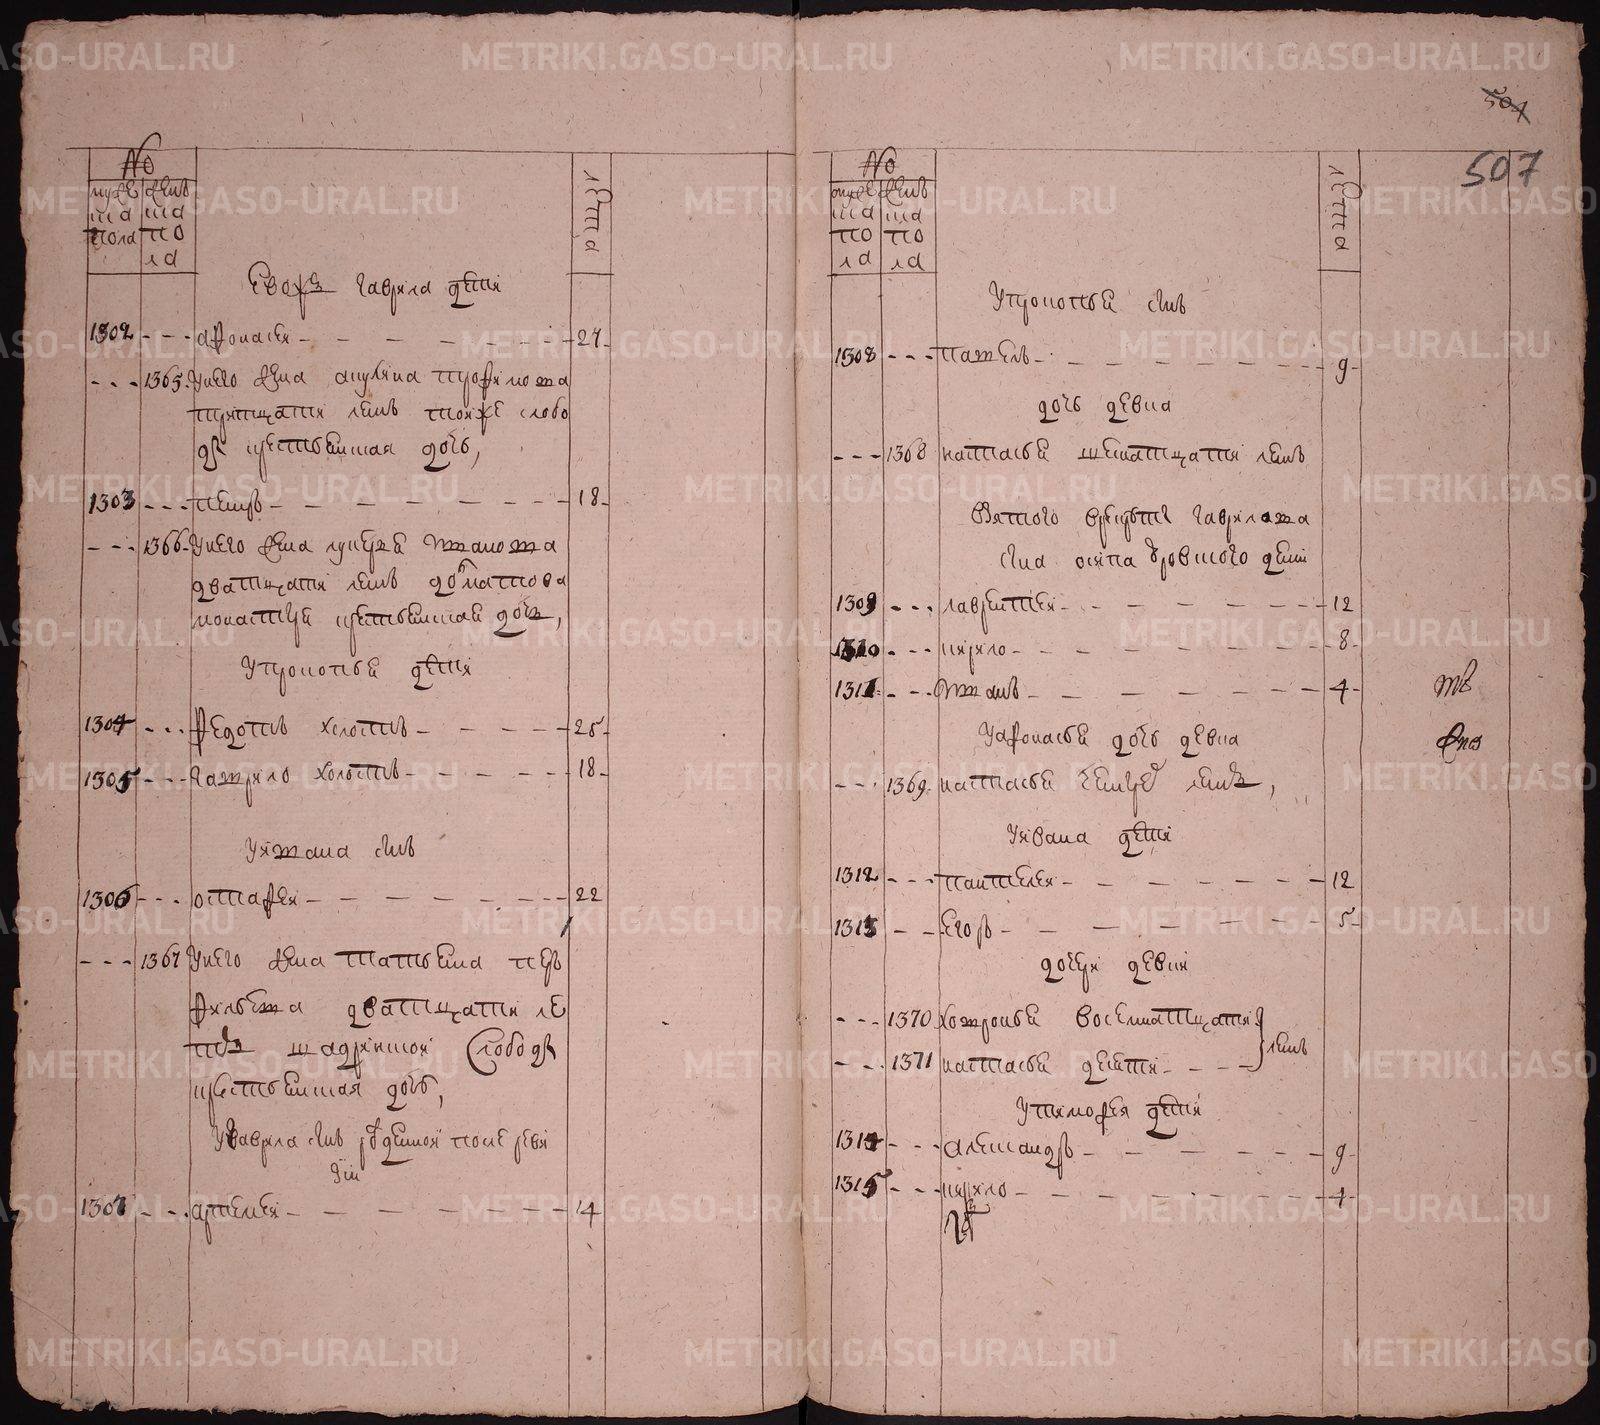 METRIKI.GASO-URAL.RU
504
507
№
муже
ска
пола
женъ
ска
по
ла
лета
Евохъ Гаврила дети
1302 - - - афонасеи - - - - - - 27
- - - 1365 У него жена акулина трофимова
тритцати летъ тояже слобо
ды крестьянская дочь,
1303 - - - петръ - - - - - - 18
- - - 1366 У него жена лукерья иванова
дватцати летъ долматова
монастыря крестьянская дочь,
У прокопья дети
1304 - - - федотъ холостъ - - - - 25
1305 - - - гаврило холостъ - - - - 18
У ивана сынъ
1306 - - - остафеи - - - - - - 22
- - - 1367 У него жена татьяна пер
фильева дватцати ле
тъ шадринской слободы
крестьянская дочь,
У гаврила сынъ рожденной после реви
зии
1307 - - - артемеи - - - - - - 14
№
муже
ска
по
ла
женъ
ска
по
ла
лета
У прокопья сынъ
1308 - - - павелъ - - - - - - 9
дочь девка
- - - 1368 настасья шеснатцати летъ
Взятого в рекруты гаврилова
сына осипа Бровского дети
1309 - - - лаврентеи - - - - - - 12
1310 - - - кирило - - - - - - 8
1311 - - - иванъ - - - - - - 4
У афонасья дочь девка
- - - 1369 настасья четырех летъ,
У ивана дети
1312 - - - пантелеи - - - - - - 12
1313 - - егоръ - - - - - - 5
дочери девки
- - - 1370 ховронья восемнатцати
- - - 1371 настасья десяти - - - летъ
У тимофея дети
1314 - - - александръ - - - - - 9
1315 - - - кирило - - - - - - 4